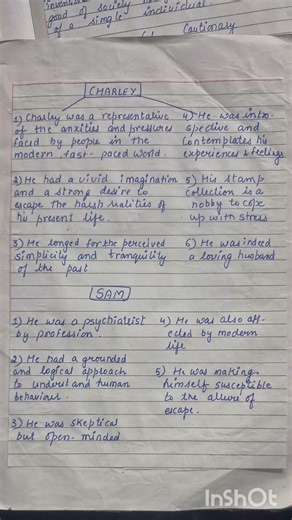 good of society
of a single individual.
Cautionary
CHARLEY
1) Charley was a representative
of the anxities and pressures
faced by people in the
modern fast-paced world.
2) He had a vivid imagination
and a strong desire to
escape the harsh realities of
his present life.
3) He longed for the perceived
simplicity and tranquility
of the past
4) He was intro-
spective and
contemplates his
experiences & feelings
5) His stamp
collection is a
hobby to cope
up with stress
6) He was indeed
a loving husband
SAM
1) He was a psychiatrist
by profession.
2) He had a grounded
and logical approach
to understand human
behaviour.
3) He was skeptical
but open-minded
4) He was also aff-
ected by modern
life
5) He was making
himself susceptible
to the allure of
escape.
InShot